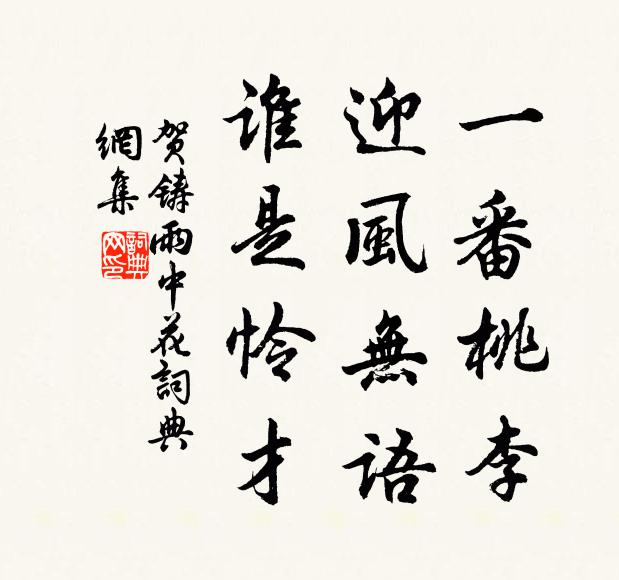 一番桃李
迎風無語
谁是怜才
贺鋳雨中花詞典
網集
詞典
网印